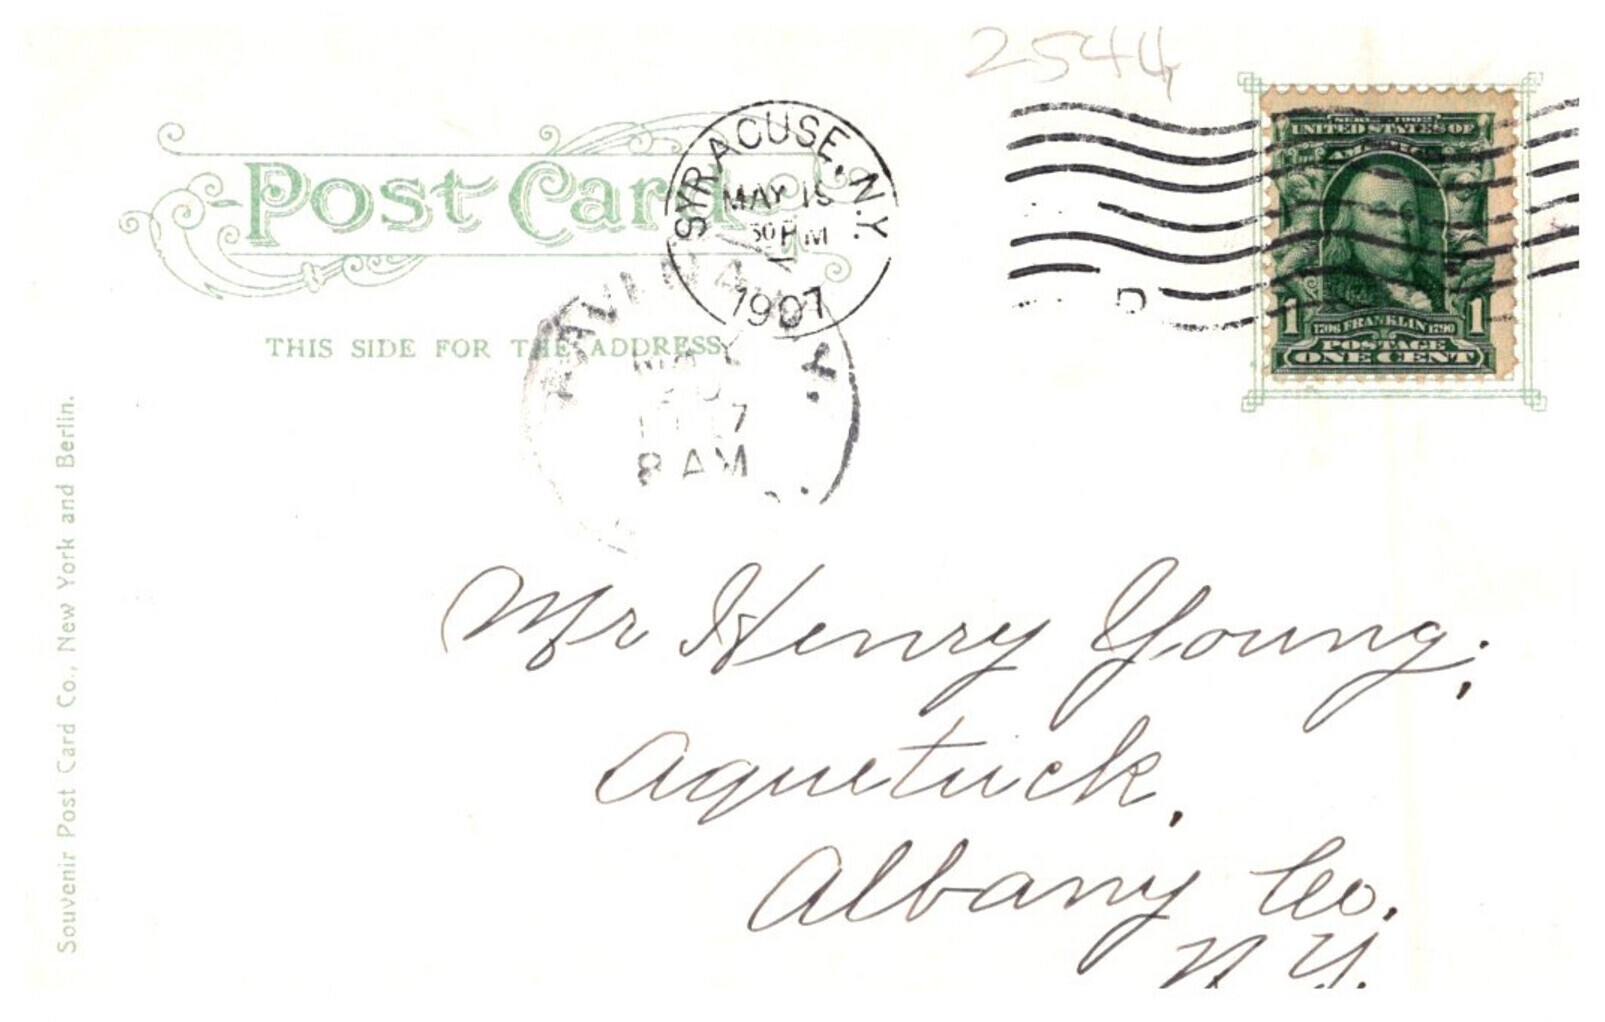 2544
Post Card
SYRACUSE, N.Y.
MAY 15
30 PM
1907
SERIES 1902
UNITED STATES OF
AMERICA
1 1706 FRANKLIN 1790 1
POSTAGE
ONE CENT
THIS SIDE FOR THE ADDRESS
Y.
7
8 AM
D
Mr Henry Young,
Aquetuck,
Albany Co.
N.Y.
Souvenir Post Card Co., New York and Berlin.